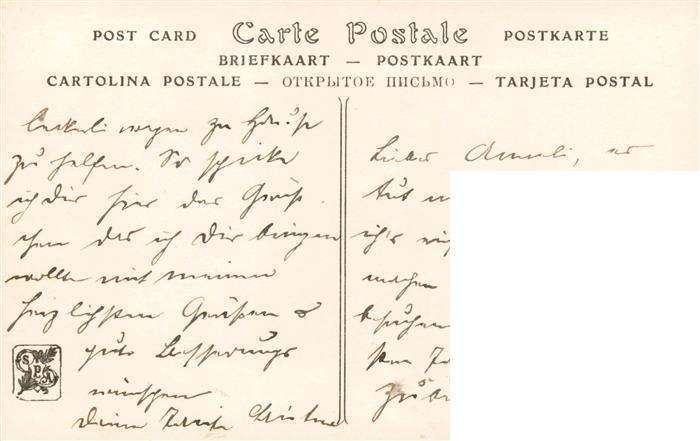 POST CARD Carte Postale POSTKARTE
BRIEFKAART — POSTKAART
CARTOLINA POSTALE — ОТКРЫТОЕ ПИСЬМО — TARJETA POSTAL
wegen zu Hause
zu helfen. So schicke
ich Dir hier das Gruß-
chen das ich Dir bringen
wollte mit meinen
herzlichsten Grüßen &
gute Besserungs
wünschen
Deine
SPA
Liebes Anneli, es
tut m
ich's
machen
besuchen